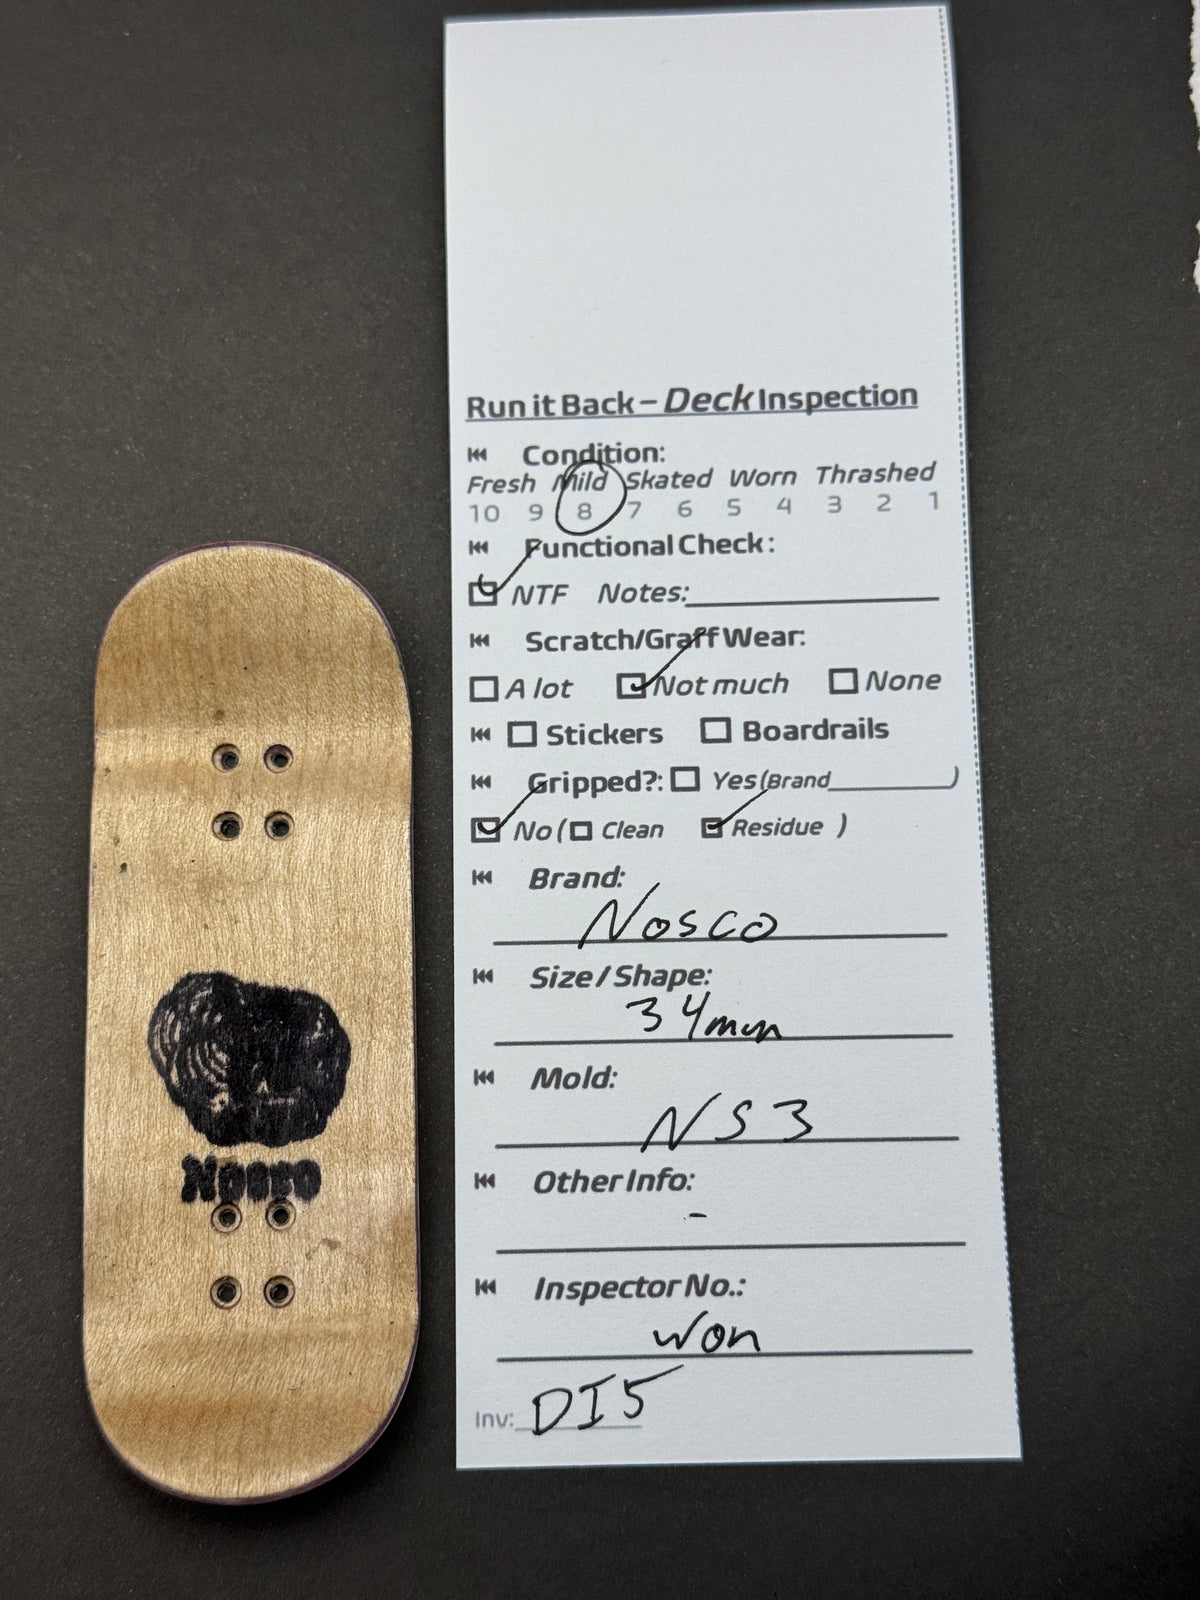 Run it Back – Deck Inspection
Condition:
Fresh Mild Skated Worn Thrashed
10 9 8 7 6 5 4 3 2 1
Functional Check:
NTF Notes:
Scratch/Graff Wear:
A lot Not much None
Stickers Boardrails
Gripped?: Yes (Brand )
No ( Clean Residue )
Brand:
Nosco
Size / Shape:
34mm
Mold:
NS3
Other Info:
-
Inspector No.:
Won
Inv: DI5
Nosco